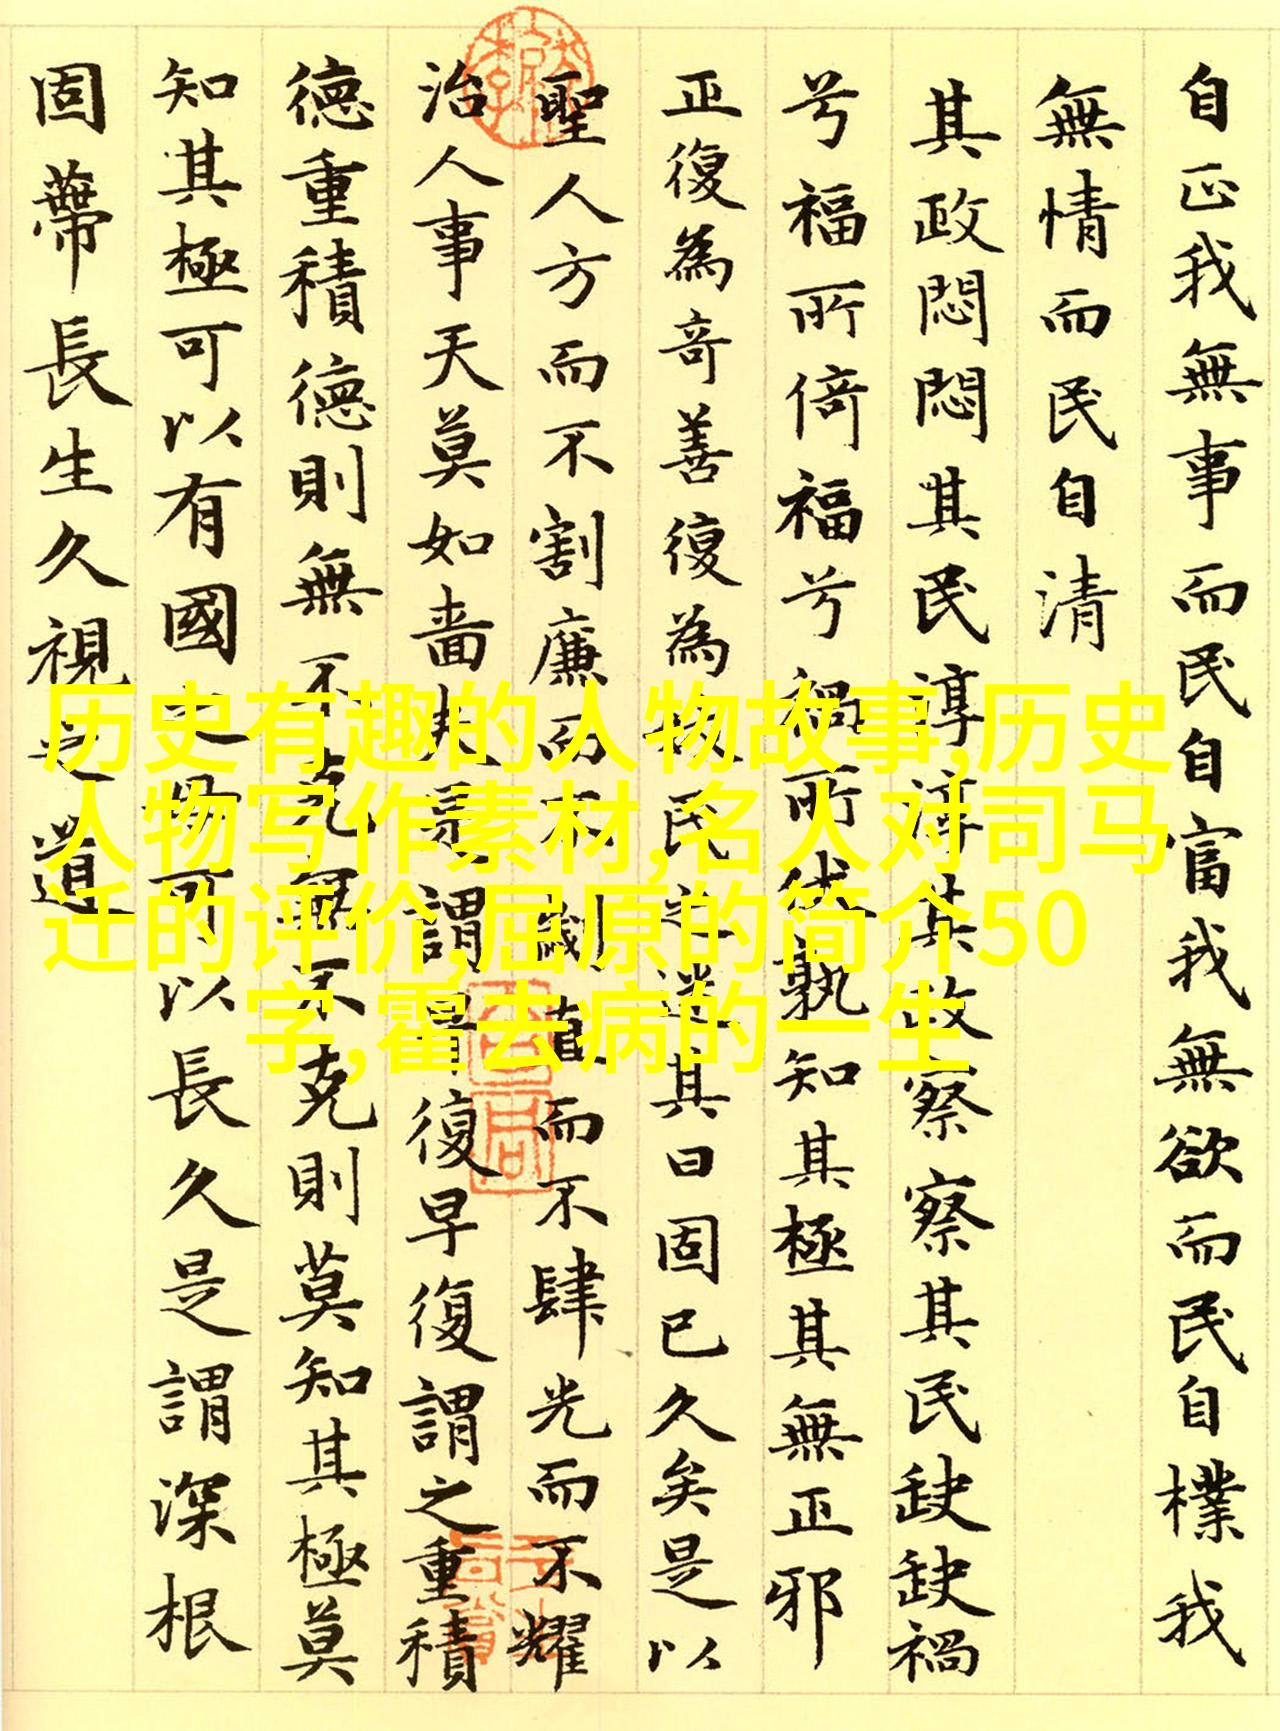 自正我無事而民自富我無欲而民自樸我
無情而民自清
其政悶悶其民淳淳其政察察其民缺缺禍
兮福所倚福兮禍所伏孰知其極其無正邪
正復為奇善復為民之迷其日固已久矣是以
聖人方而不割廉而不劌直而不肆光而不耀
治人事天莫如嗇夫謂早復早復謂之重積
德重積德則無不克無不克則莫知其極莫
知其極可以有國之母可以長久是謂深根
固蔕長生久視之道
历史有趣的人物故事,历史
人物写作素材,名人对司马
迁的评价,屈原的简介50
字,霍去病的一生